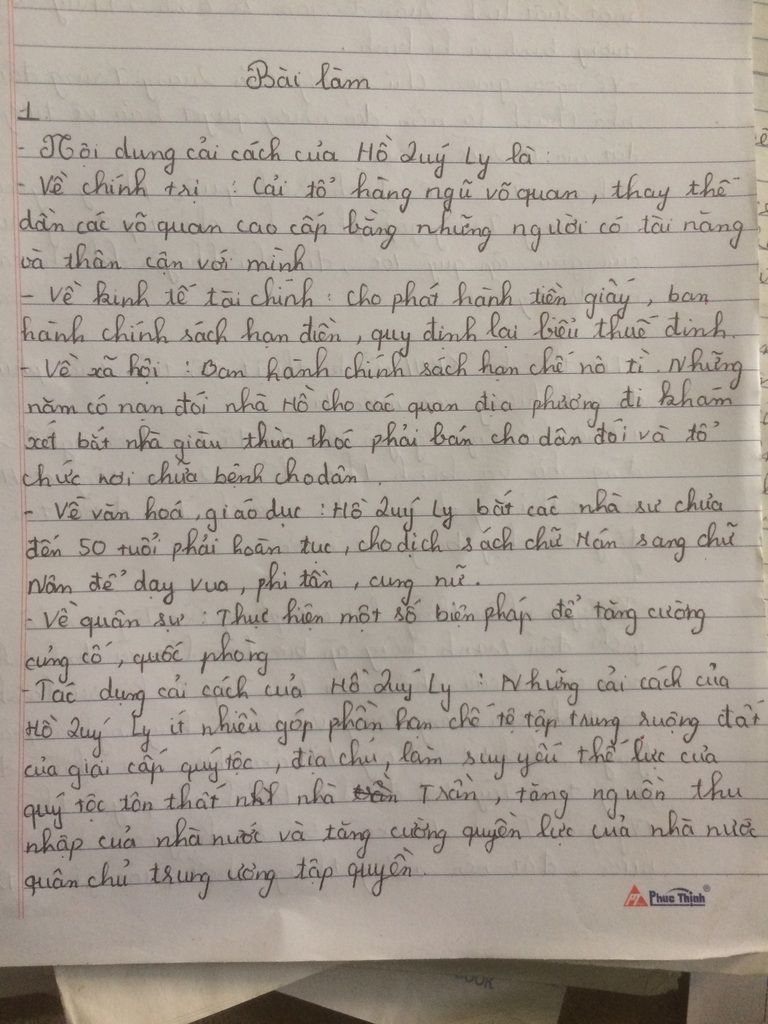 Bài làm
1
- Nội dung cải cách của Hồ Quý Ly là:
- Về chính trị : Cải tổ hàng ngũ võ quan, thay thế
dần các võ quan cao cấp bằng những người có tài năng
và thân cận với mình
- Về kinh tế tài chính : cho phát hành tiền giấy, ban
hành chính sách hạn điền, quy định lại biểu thuế đinh.
- Về xã hội : Ban hành chính sách hạn chế nô tì. Những
năm có nạn đói nhà Hồ cho các quan địa phương đi khám
xét bắt nhà giàu thừa thóc phải bán cho dân đói và tổ
chức nơi chữa bệnh cho dân.
- Về văn hoá, giáo dục : Hồ Quý Ly bắt các nhà sư chưa
đến 50 tuổi phải hoàn tục, cho dịch sách chữ Hán sang chữ
Nôm để dạy vua, phi tần, cung nữ.
- Về quân sự : Thực hiện một số biện pháp để tăng cường
củng cố, quốc phòng
- Tác dụng cải cách của Hồ Quý Ly : Những cải cách của
Hồ Quý Ly ít nhiều góp phần hạn chế tệ tập trung ruộng đất
của giai cấp quý tộc, địa chủ, làm suy yếu thế lực của
quý tộc tôn thất nhà Trần, tăng nguồn thu
nhập của nhà nước và tăng cường quyền lực của nhà nước
quân chủ trung ương tập quyền.
Phuc Thinh®